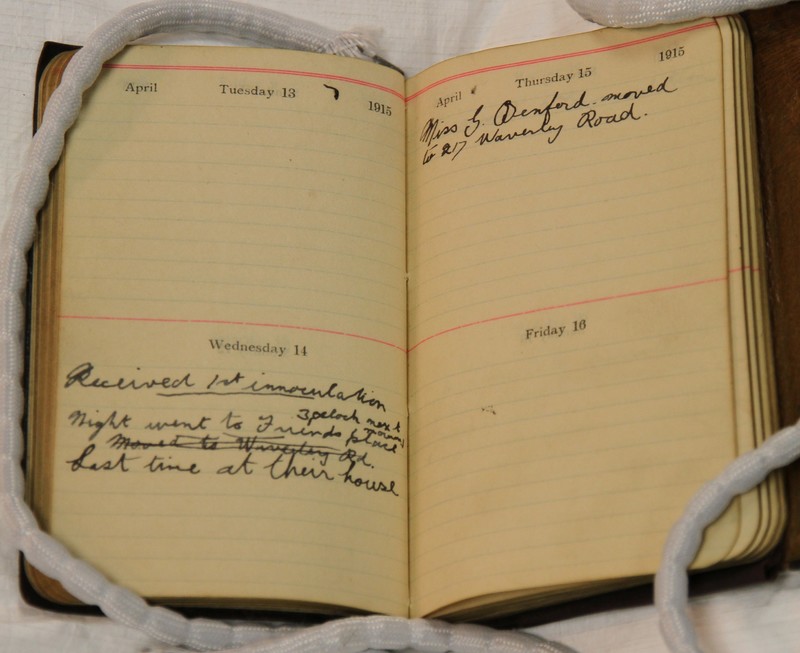 April Tuesday 13 1915
Wednesday 14
Received 1st innoculation
3 oclock next
morning
Night went to Friends place
Moved to Waverley Rd.
Last time at their house
April Thursday 15 1915
Miss G. Benford. moved
to 217 Waverley Road.
Friday 16